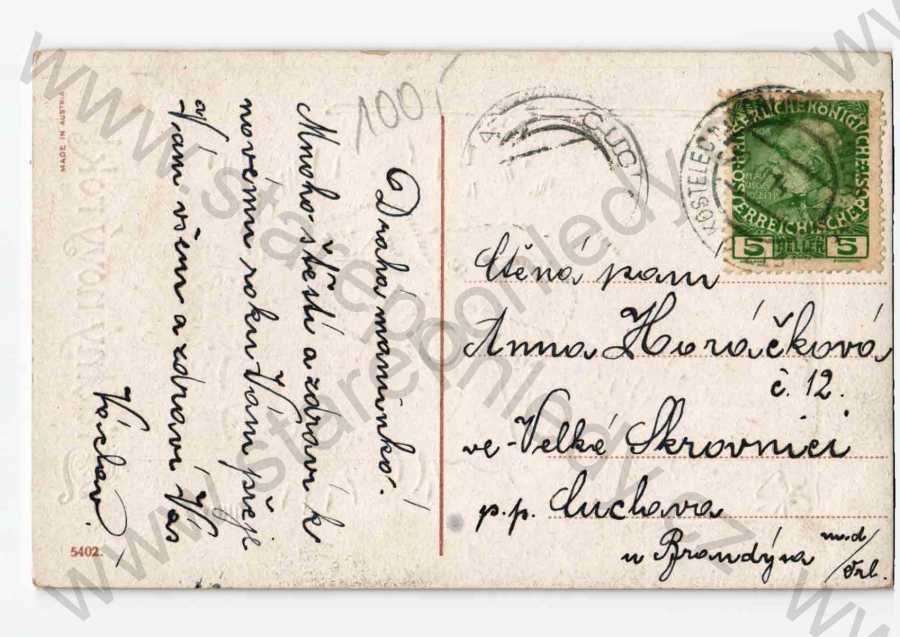 MADE IN AUSTRIA
100
Drahá maminko!
Mnoho štěstí a zdraví k
novému roku Vám přeje
a
Vám všem a zdraví Vás
Václav
5402.
KOSTELEC
KAISERLICHE KÖNIGLICHE
ÖSTERREICHISCHE POST
5 HELLER 5
Ctěná paní
Anna Horáčková
č. 12.
ve Velké Skrovnici
p.p. Čuchava
u Brandýsa n./Orl.
www.starepohledy.cz